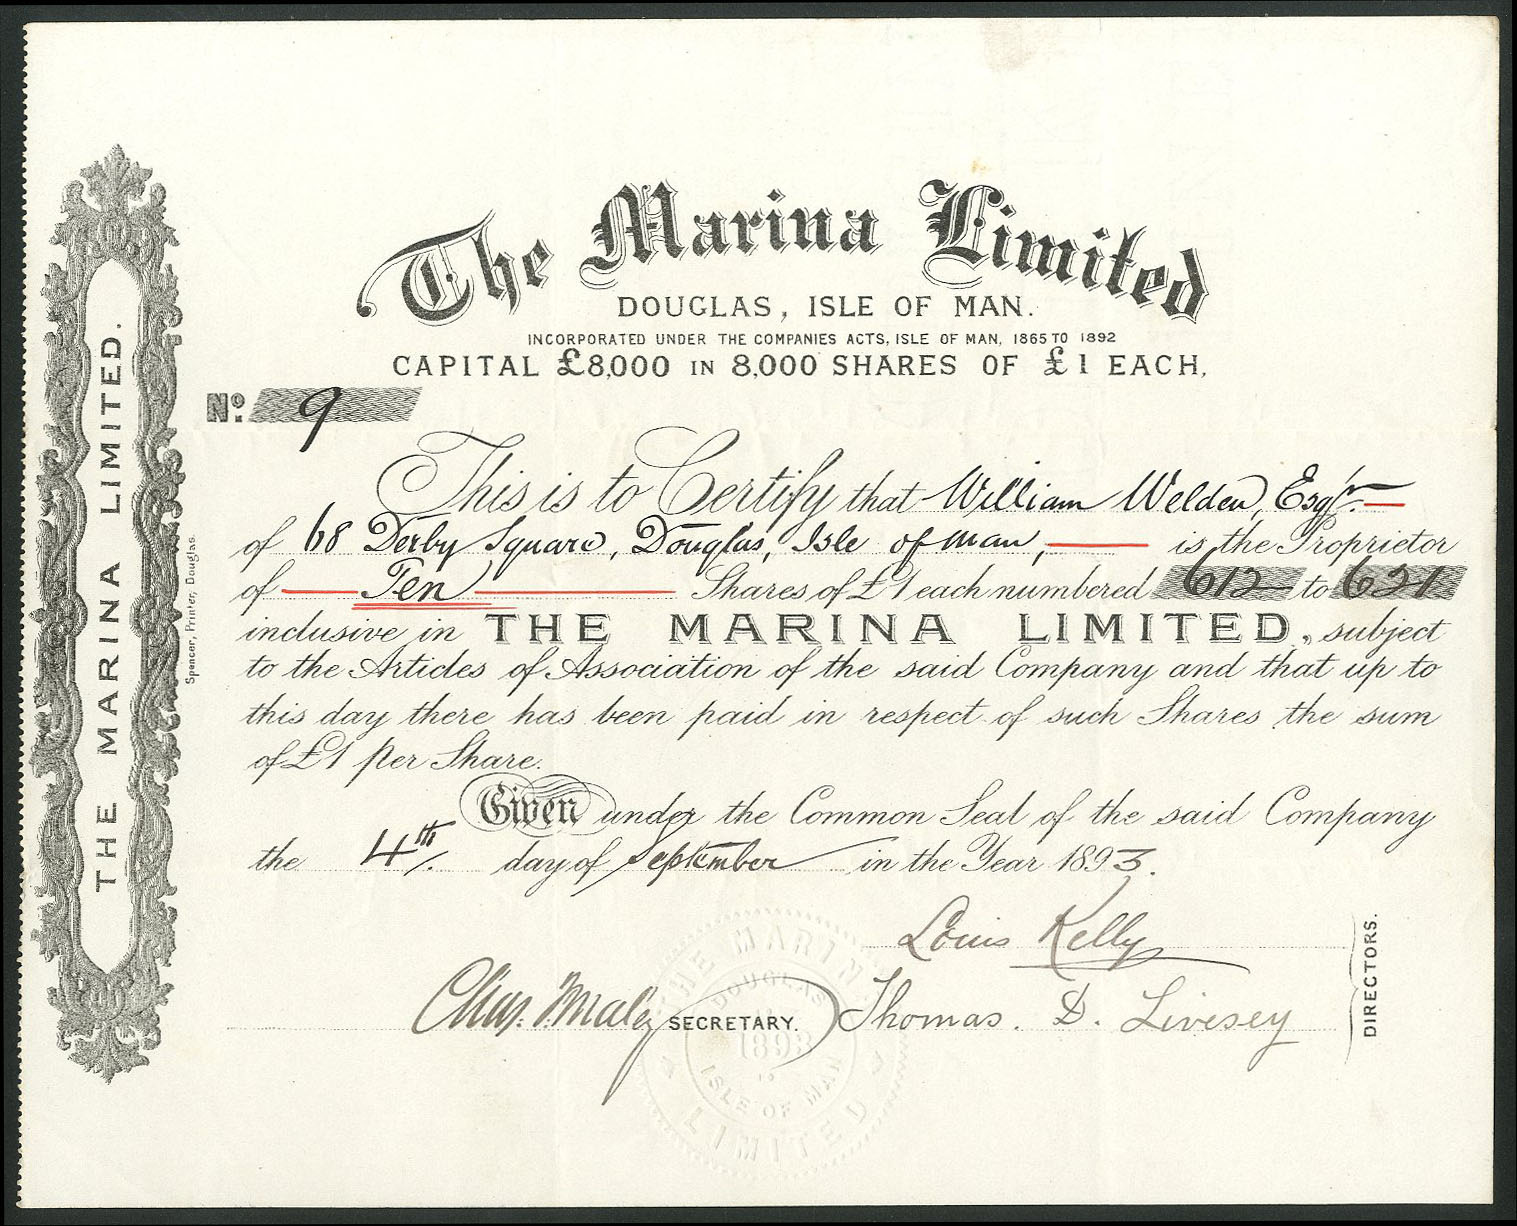 The Marina Limited
DOUGLAS, ISLE OF MAN.
INCORPORATED UNDER THE COMPANIES ACTS, ISLE OF MAN, 1865 TO 1892
CAPITAL £8,000 IN 8,000 SHARES OF £1 EACH,
No. 9
This is to Certify that William Welden, Esqr.
of 68 Derby Square, Douglas, Isle of Man, is the Proprietor
of Ten Shares of £1 each numbered 612 to 621
inclusive in THE MARINA LIMITED, subject
to the Articles of Association of the said Company and that up to
this day there has been paid in respect of such Shares the sum
of £1 per Share.
Given under the Common Seal of the said Company
the 4th day of September in the Year 1893.
Louis Kelly
Thomas. D. Livesey
DIRECTORS.
Chas. Maley SECRETARY.
THE MARINA LIMITED
DOUGLAS
1893
ISLE OF MAN
THE MARINA LIMITED.
Spencer, Printer, Douglas.